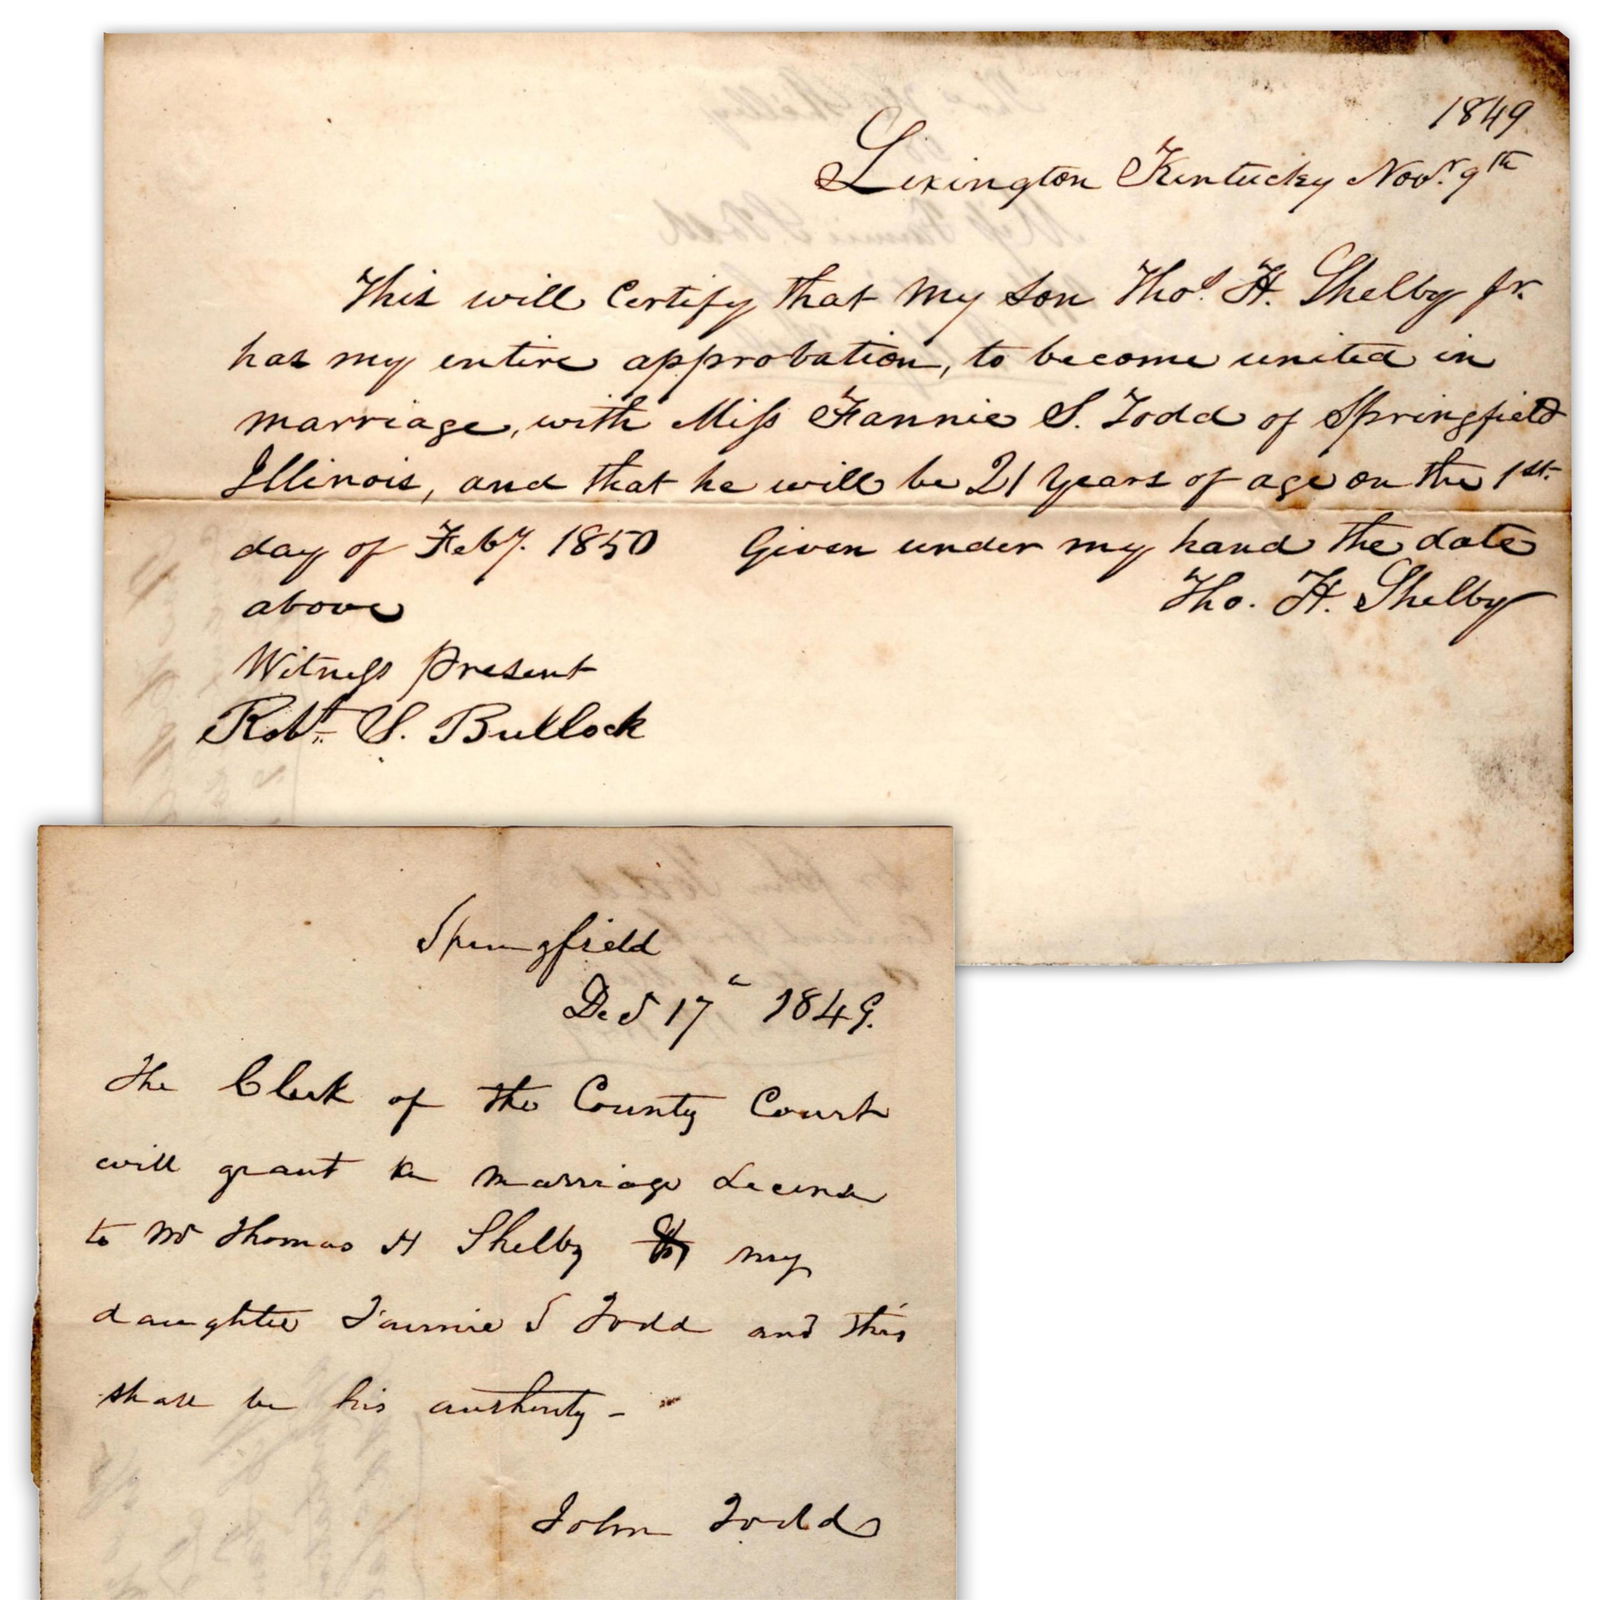 1849
Lexington Kentucky Novr. 9th
This will Certify that my son Thos. H. Shelby Jr.
has my entire approbation, to become united in
marriage, with Miss Fannie S. Todd of Springfield
Illinois, and that he will be 21 years of age on the 1st.
day of Feby. 1850 Given under my hand the date
above
Tho. H. Shelby
Witness present
Robt. S. Bullock
Springfield
17 1849.
The Clerk of the County Court
will grant marriage License
to Mr Thomas H Shelby my
daughter Fannie S Todd and this
shall be his authority -
John Todd